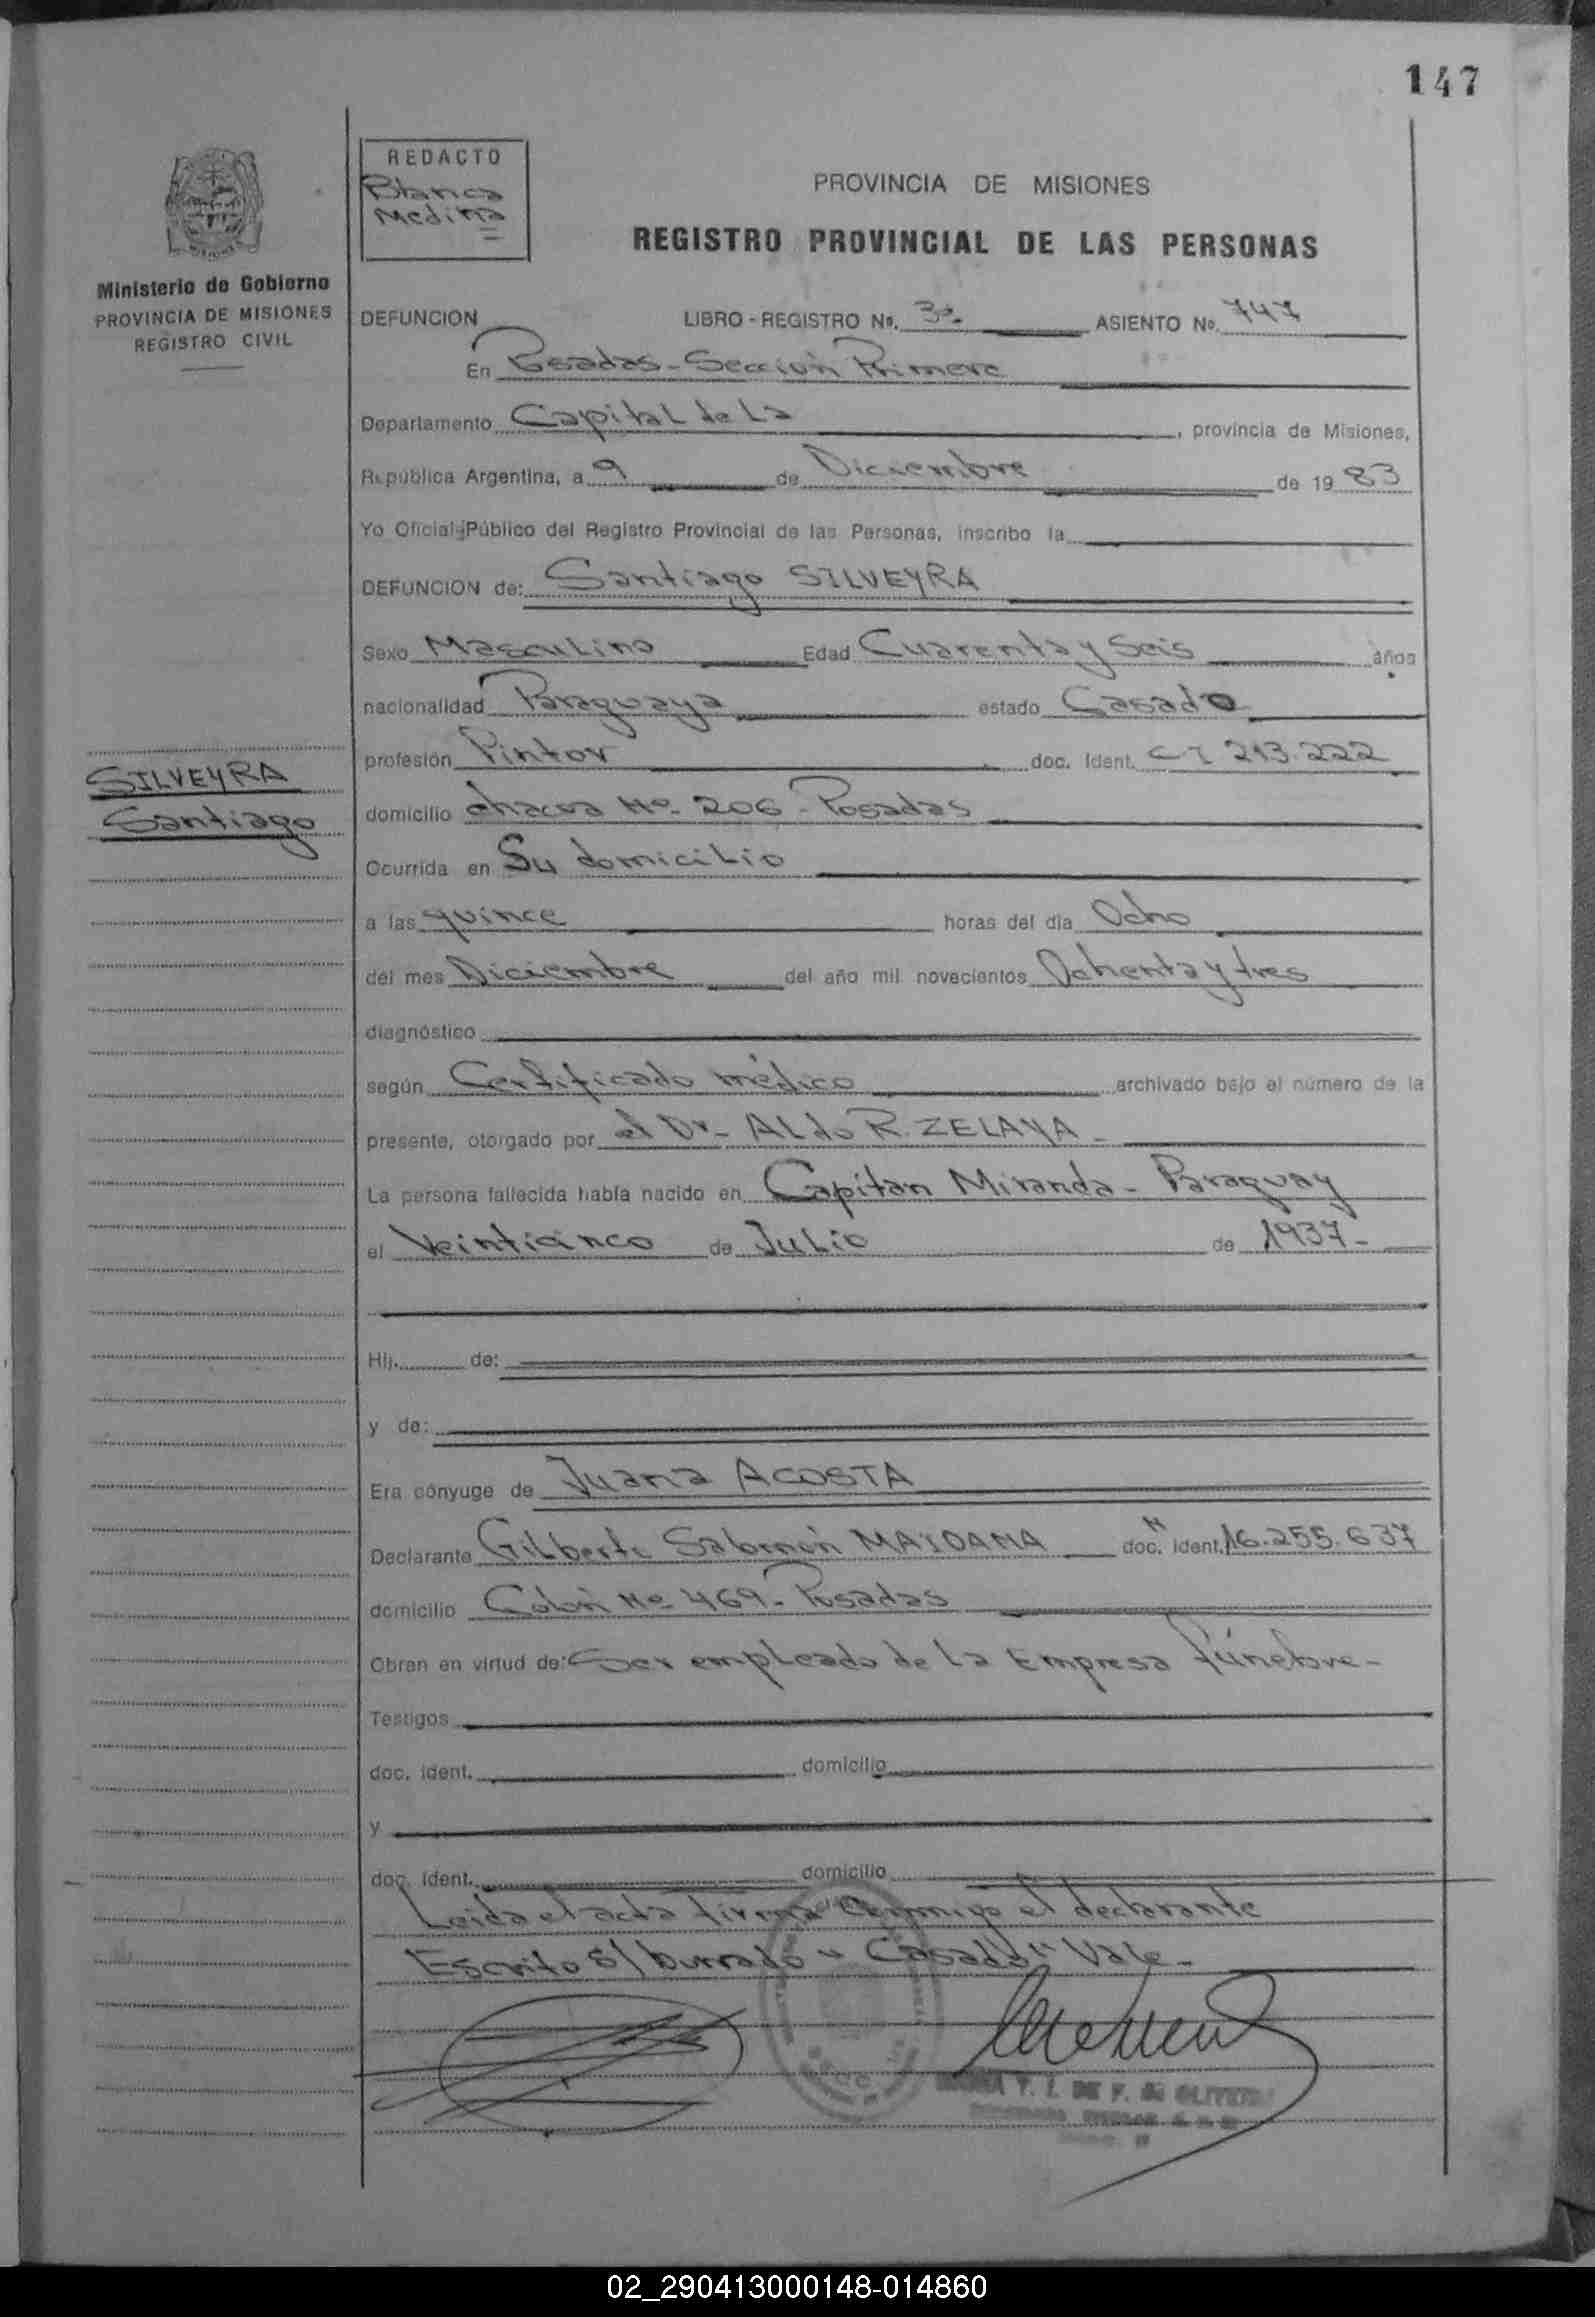 147
REDACTO
Blanca
Medina
PROVINCIA DE MISIONES
REGISTRO PROVINCIAL DE LAS PERSONAS
Ministerio de Gobierno
PROVINCIA DE MISIONES
REGISTRO CIVIL
DEFUNCION LIBRO - REGISTRO No. 3º ASIENTO No. 747
En Posadas - Sección Primera
Departamento Capital de La, provincia de Misiones,
República Argentina, a 9 de Diciembre de 1983
Yo Oficial Público del Registro Provincial de las Personas, inscribo la
DEFUNCION de: Santiago SILVEYRA
Sexo Masculino Edad Cuarenta y Seis años
nacionalidad Paraguaya estado Casado
profesión Pintor doc. Ident. CI 213.222
SILVEYRA
Santiago
domicilio chacra Nº 206 - Posadas
Ocurrida en Su domicilio
a las quince horas del día Ocho
del mes Diciembre del año mil novecientos Ochenta y tres
diagnóstico
según Certificado médico archivado bajo el número de la
presente, otorgado por el Dr. Aldo R. ZELAYA -
La persona fallecida había nacido en Capitan Miranda - Paraguay
el Veinticinco de Julio de 1937 -
Hij de:
y de:
Era cónyuge de Juana ACOSTA
Declarante Gilberto Salomón MAIDANA doc. Ident. 16.255.637
domicilio Colón Nº 469 - Posadas
Obran en virtud de: Ser empleado de la Empresa fúnebre -
Testigos
doc. ident. domicilio
y
doc. ident. domicilio
Leida el acta firma conmigo el declarante
Escrito s/ burrado "Casado" Vale -
02_290413000148-014860